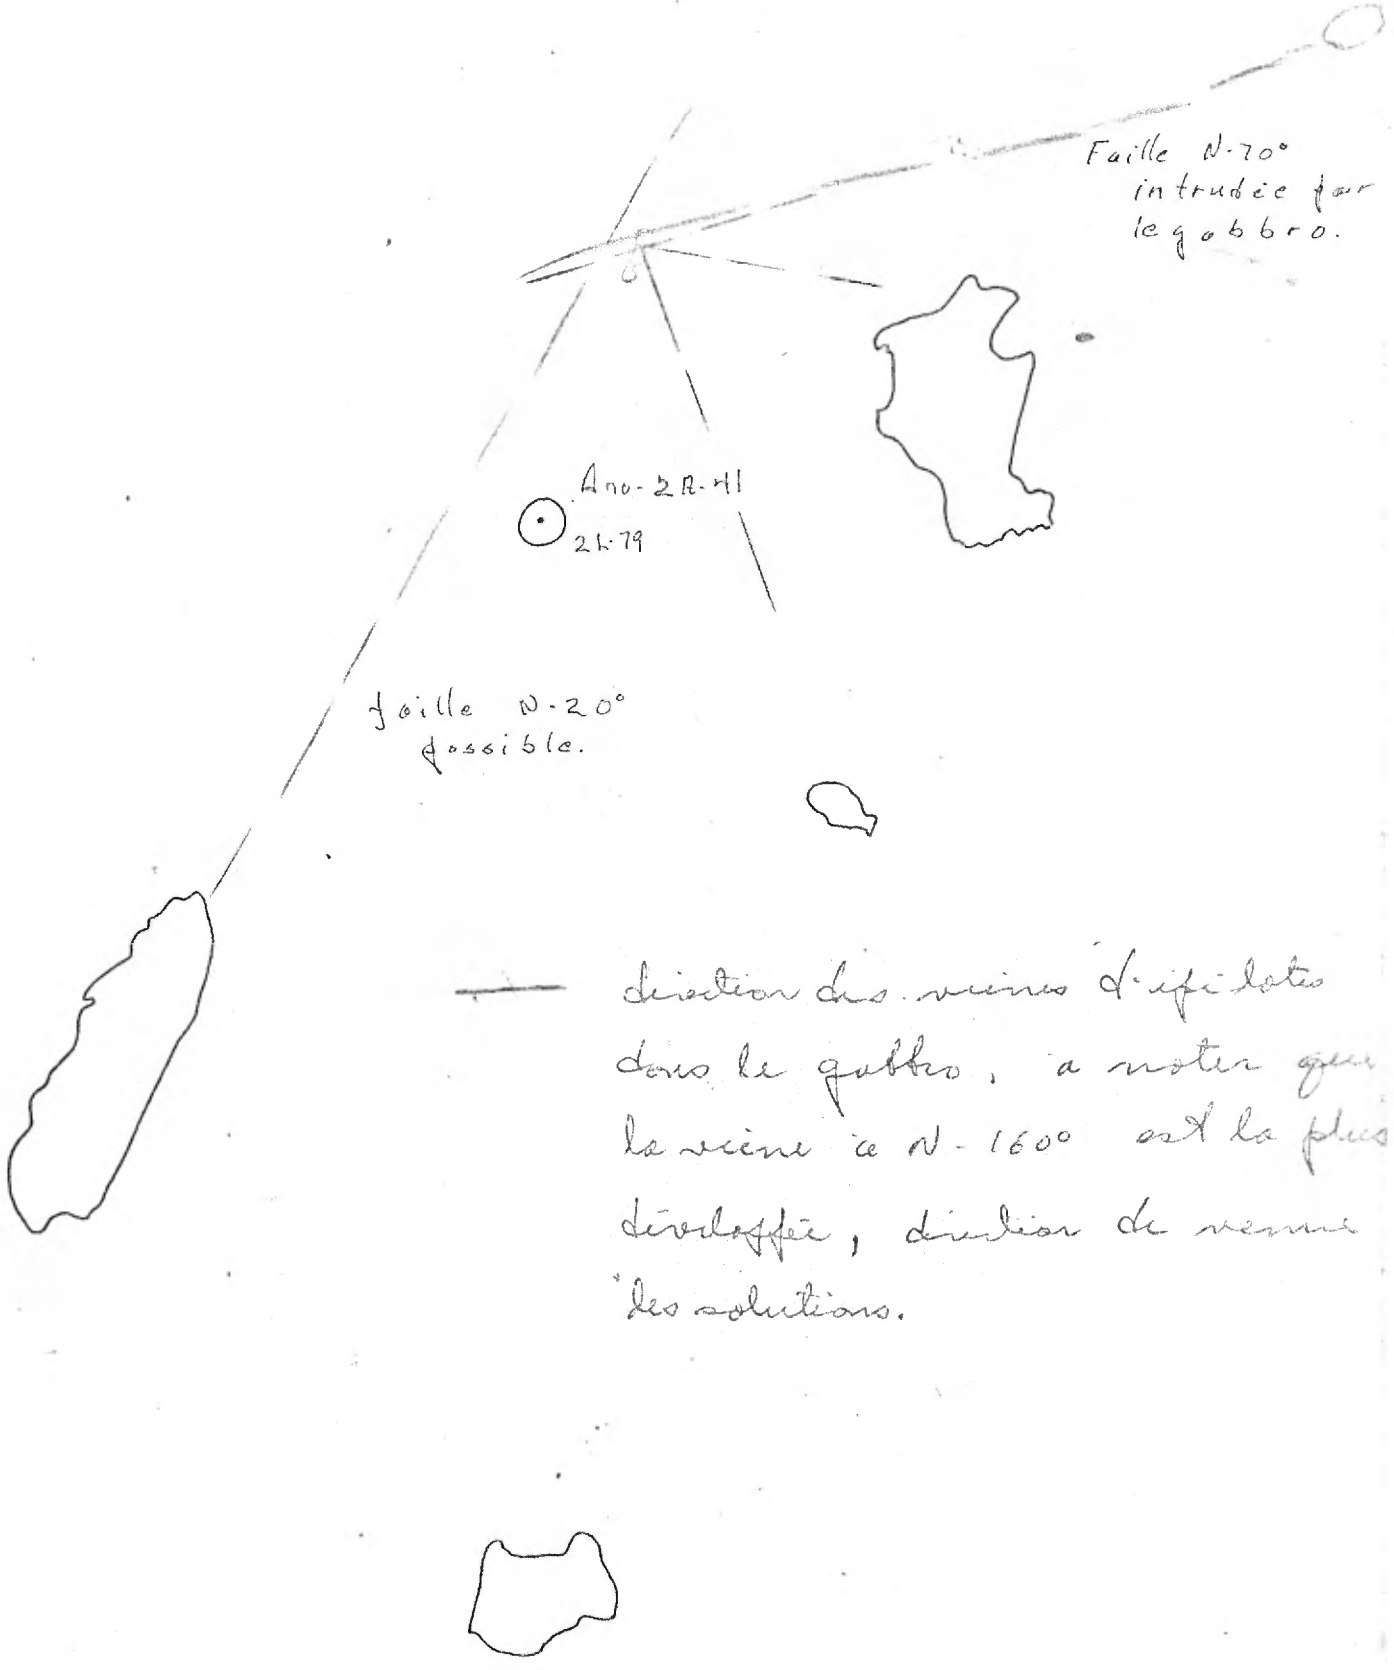 Faille N-70°
intrudée par
le gabbro.
Ano-2R-41
2L-79
faille N-20°
possible.
direction des veines d'épidotes
dans le gabbro, a noter que
la veine à N-160° est la plus
développée, direction de venue
des solutions.